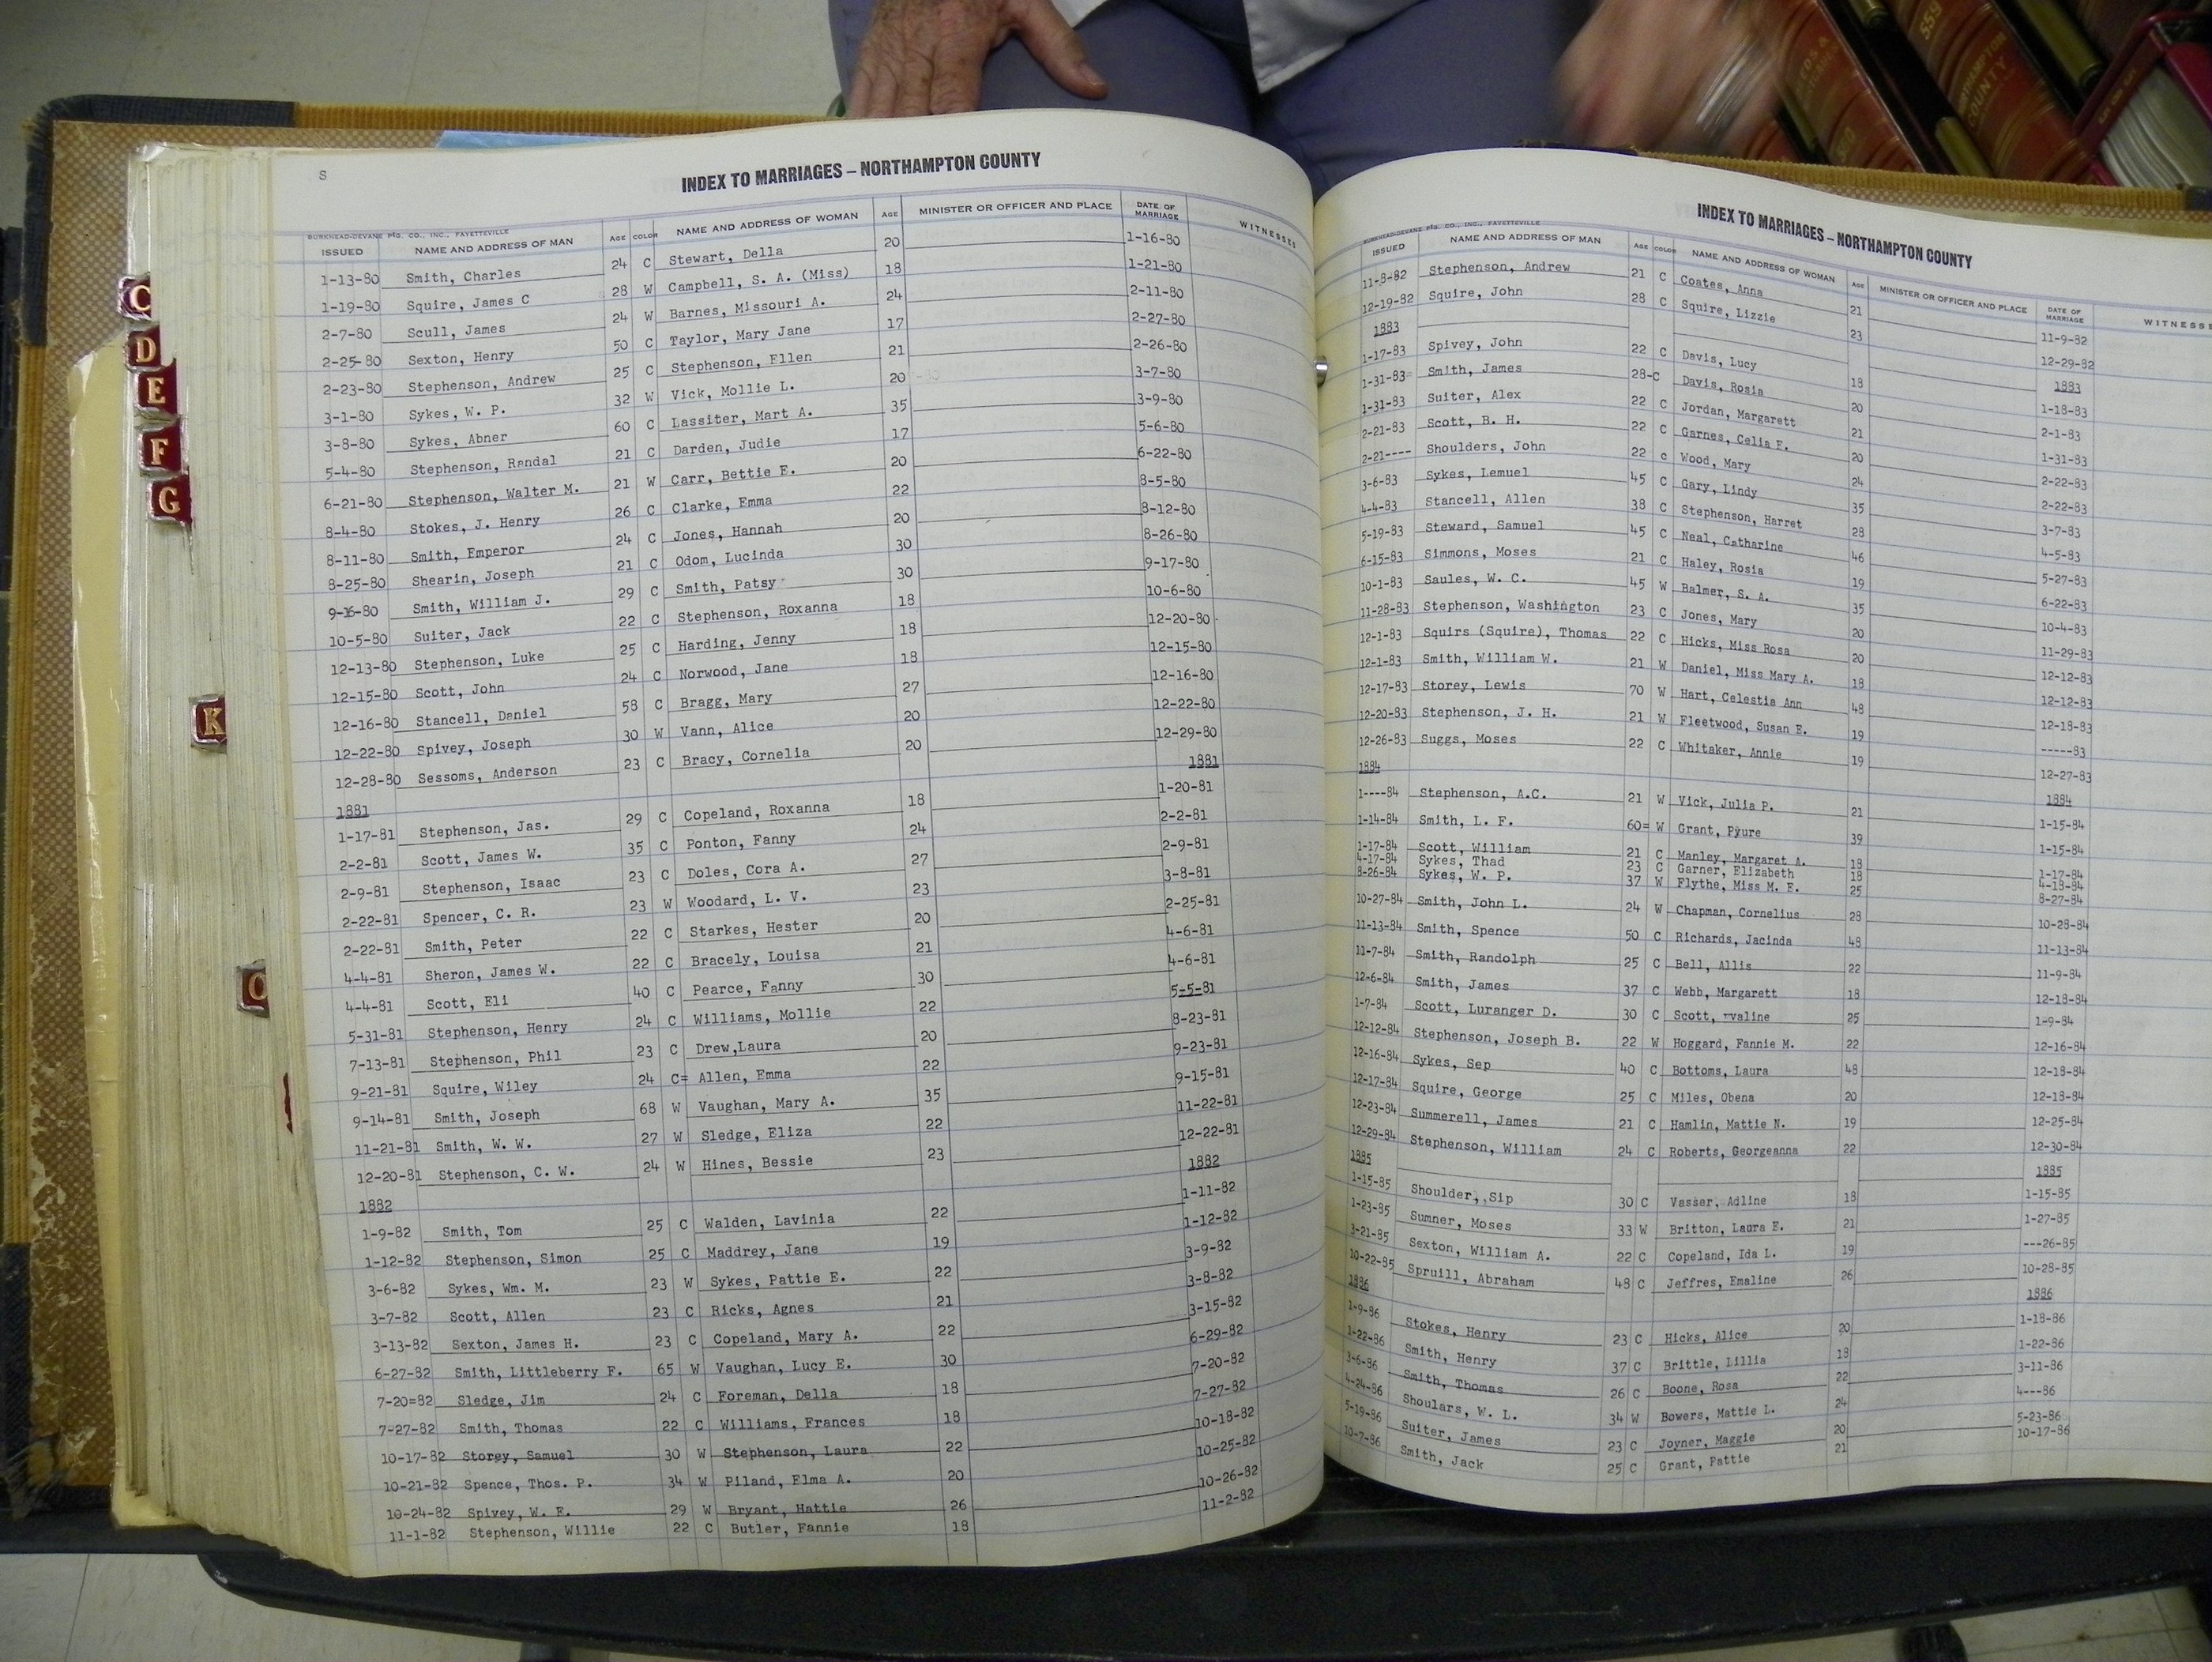 S
INDEX TO MARRIAGES – NORTHAMPTON COUNTY
BURKHEAD-DEVANE PTG. CO., INC., FAYETTEVILLE
ISSUED NAME AND ADDRESS OF MAN AGE COLOR NAME AND ADDRESS OF WOMAN AGE MINISTER OR OFFICER AND PLACE DATE OF MARRIAGE WITNESSES
1-13-80 Smith, Charles 24 C Stewart, Della 20 1-16-80
1-19-80 Squire, James C 28 W Campbell, S. A. (Miss) 18 1-21-80
2-7-80 Scull, James 24 W Barnes, Missouri A. 24 2-11-80
2-25-80 Sexton, Henry 50 C Taylor, Mary Jane 17 2-27-80
2-23-80 Stephenson, Andrew 25 C Stephenson, Ellen 21 2-26-80
3-1-80 Sykes, W. P. 32 W Vick, Mollie L. 20 3-7-80
3-8-80 Sykes, Abner 60 C Lassiter, Mart A. 35 3-9-80
5-4-80 Stephenson, Randal 21 C Darden, Judie 17 5-6-80
6-21-80 Stephenson, Walter M. 21 W Carr, Bettie E. 20 6-22-80
8-4-80 Stokes, J. Henry 26 C Clarke, Emma 22 8-5-80
8-11-80 Smith, Emperor 24 C Jones, Hannah 20 8-12-80
8-25-80 Shearin, Joseph 21 C Odom, Lucinda 30 8-26-80
9-16-80 Smith, William J. 29 C Smith, Patsy 30 9-17-80
10-5-80 Suiter, Jack 22 C Stephenson, Roxanna 18 10-6-80
12-13-80 Stephenson, Luke 25 C Harding, Jenny 18 12-20-80
12-15-80 Scott, John 24 C Norwood, Jane 18 12-15-80
12-16-80 Stancell, Daniel 58 C Bragg, Mary 27 12-16-80
12-22-80 Spivey, Joseph 30 W Vann, Alice 20 12-22-80
12-28-80 Sessoms, Anderson 23 C Bracy, Cornelia 20 12-29-80
1881 1881
1-17-81 Stephenson, Jas. 29 C Copeland, Roxanna 18 1-20-81
2-2-81 Scott, James W. 35 C Ponton, Fanny 24 2-2-81
2-9-81 Stephenson, Isaac 23 C Doles, Cora A. 27 2-9-81
2-22-81 Spencer, C. R. 23 W Woodard, L. V. 23 3-8-81
2-22-81 Smith, Peter 22 C Starkes, Hester 20 2-25-81
4-4-81 Sheron, James W. 22 C Bracely, Louisa 21 4-6-81
4-4-81 Scott, Eli 40 C Pearce, Fanny 30 4-6-81
5-31-81 Stephenson, Henry 24 C Williams, Mollie 22 5-5-81
7-13-81 Stephenson, Phil 23 C Drew,Laura 20 8-23-81
9-21-81 Squire, Wiley 24 C= Allen, Emma 22 9-23-81
9-14-81 Smith, Joseph 68 W Vaughan, Mary A. 35 9-15-81
11-21-81 Smith, W. W. 27 W Sledge, Eliza 22 11-22-81
12-20-81 Stephenson, C. W. 24 W Hines, Bessie 23 12-22-81
1882 1882
1-9-82 Smith, Tom 25 C Walden, Lavinia 22 1-11-82
1-12-82 Stephenson, Simon 25 C Maddrey, Jane 19 1-12-82
3-6-82 Sykes, Wm. M. 23 W Sykes, Pattie E. 22 3-9-82
3-7-82 Scott, Allen 23 C Ricks, Agnes 21 3-8-82
3-13-82 Sexton, James H. 23 C Copeland, Mary A. 22 3-15-82
6-27-82 Smith, Littleberry F. 65 W Vaughan, Lucy E. 30 6-29-82
7-20=82 Sledge, Jim 24 C Foreman, Della 18 7-20-82
7-27-82 Smith, Thomas 22 C Williams, Frances 18 7-27-82
10-17-82 Storey, Samuel 30 W Stephenson, Laura 22 10-18-82
10-21-82 Spence, Thos. P. 34 W Piland, Elma A. 20 10-25-82
10-24-82 Spivey, W. E. 29 W Bryant, Hattie 26 10-26-82
11-1-82 Stephenson, Willie 22 C Butler, Fannie 18 11-2-82
INDEX TO MARRIAGES – NORTHAMPTON COUNTY
BURKHEAD-DEVANE PTG. CO., INC., FAYETTEVILLE
ISSUED NAME AND ADDRESS OF MAN AGE COLOR NAME AND ADDRESS OF WOMAN AGE MINISTER OR OFFICER AND PLACE DATE OF MARRIAGE WITNESSE
11-8-82 Stephenson, Andrew 21 C Coates, Anna 21 11-9-82
12-19-82 Squire, John 28 C Squire, Lizzie 23 12-29-82
1883 1883
1-17-83 Spivey, John 22 C Davis, Lucy 18 1-18-83
1-31-83 Smith, James 28-C Davis, Rosia 20 2-1-83
1-31-83 Suiter, Alex 22 C Jordan, Margarett 21 1-31-83
2-21-83 Scott, B. H. 22 C Garnes, Celia E. 20 2-22-83
2-21---- Shoulders, John 22 c Wood, Mary 24 2-22-83
3-6-83 Sykes, Lemuel 45 C Gary, Lindy 35 3-7-83
4-4-83 Stancell, Allen 38 C Stephenson, Harret 28 4-5-83
5-19-83 Steward, Samuel 45 C Neal, Catharine 46 5-27-83
6-15-83 Simmons, Moses 21 C Haley, Rosia 19 6-22-83
10-1-83 Saules, W. C. 45 W Balmer, S. A. 35 10-4-83
11-28-83 Stephenson, Washington 23 C Jones, Mary 20 11-29-83
12-1-83 Squirs (Squire), Thomas 22 C Hicks, Miss Rosa 20 12-12-83
12-1-83 Smith, William W. 21 W Daniel, Miss Mary A. 18 12-12-83
12-17-83 Storey, Lewis 70 W Hart, Celestia Ann 48 12-18-83
12-20-83 Stephenson, J. H. 21 W Fleetwood, Susan E. 19 -----83
12-26-83 Suggs, Moses 22 C Whitaker, Annie 19 12-27-83
1884 1884
1----84 Stephenson, A.C. 21 W Vick, Julia P. 21 1-15-84
1-14-84 Smith, L. F. 60= W Grant, Pyure 39 1-15-84
1-17-84 Scott, William 21 C Manley, Margaret A. 18 1-17-84
4-17-84 Sykes, Thad 23 C Garner, Elizabeth 18 4-18-84
8-26-84 Sykes, W. P. 37 W Flythe, Miss M. E. 25 8-27-84
10-27-84 Smith, John L. 24 W Chapman, Cornelius 28 10-28-84
11-13-84 Smith, Spence 50 C Richards, Jacinda 48 11-13-84
11-7-84 Smith, Randolph 25 C Bell, Allis 22 11-9-84
12-6-84 Smith, James 37 C Webb, Margarett 18 12-18-84
1-7-84 Scott, Luranger D. 30 C Scott, valine 25 1-9-84
12-12-84 Stephenson, Joseph B. 22 W Hoggard, Fannie M. 22 12-16-84
12-16-84 Sykes, Sep 40 C Bottoms, Laura 48 12-18-84
12-17-84 Squire, George 25 C Miles, Obena 20 12-18-84
12-23-84 Summerell, James 21 C Hamlin, Mattie N. 19 12-25-84
12-29-84 Stephenson, William 24 C Roberts, Georgeanna 22 12-30-84
1885 1885
1-15-85 Shoulder, Sip 30 C Vasser, Adline 18 1-15-85
1-23-85 Sumner, Moses 33 W Britton, Laura E. 21 1-27-85
3-21-85 Sexton, William A. 22 C Copeland, Ida L. 19 ---26-85
10-22-85 Spruill, Abraham 48 C Jeffres, Emaline 26 10-28-85
1886 1886
1-9-86 Stokes, Henry 23 C Hicks, Alice 20 1-18-86
1-22-86 Smith, Henry 37 C Brittle, Lillia 18 1-22-86
3-6-86 Smith, Thomas 26 C Boone, Rosa 22 3-11-86
4-24-86 Shoulars, W. L. 34 W Bowers, Mattie L. 24 4---86
5-19-86 Suiter, James 23 C Joyner, Maggie 20 5-23-86
10-7-86 Smith, Jack 25 C Grant, Pattie 21 10-17-86
C
D
E
F
G
K
O
DEEDS &
559
NORTHAMPTON
COUNTY